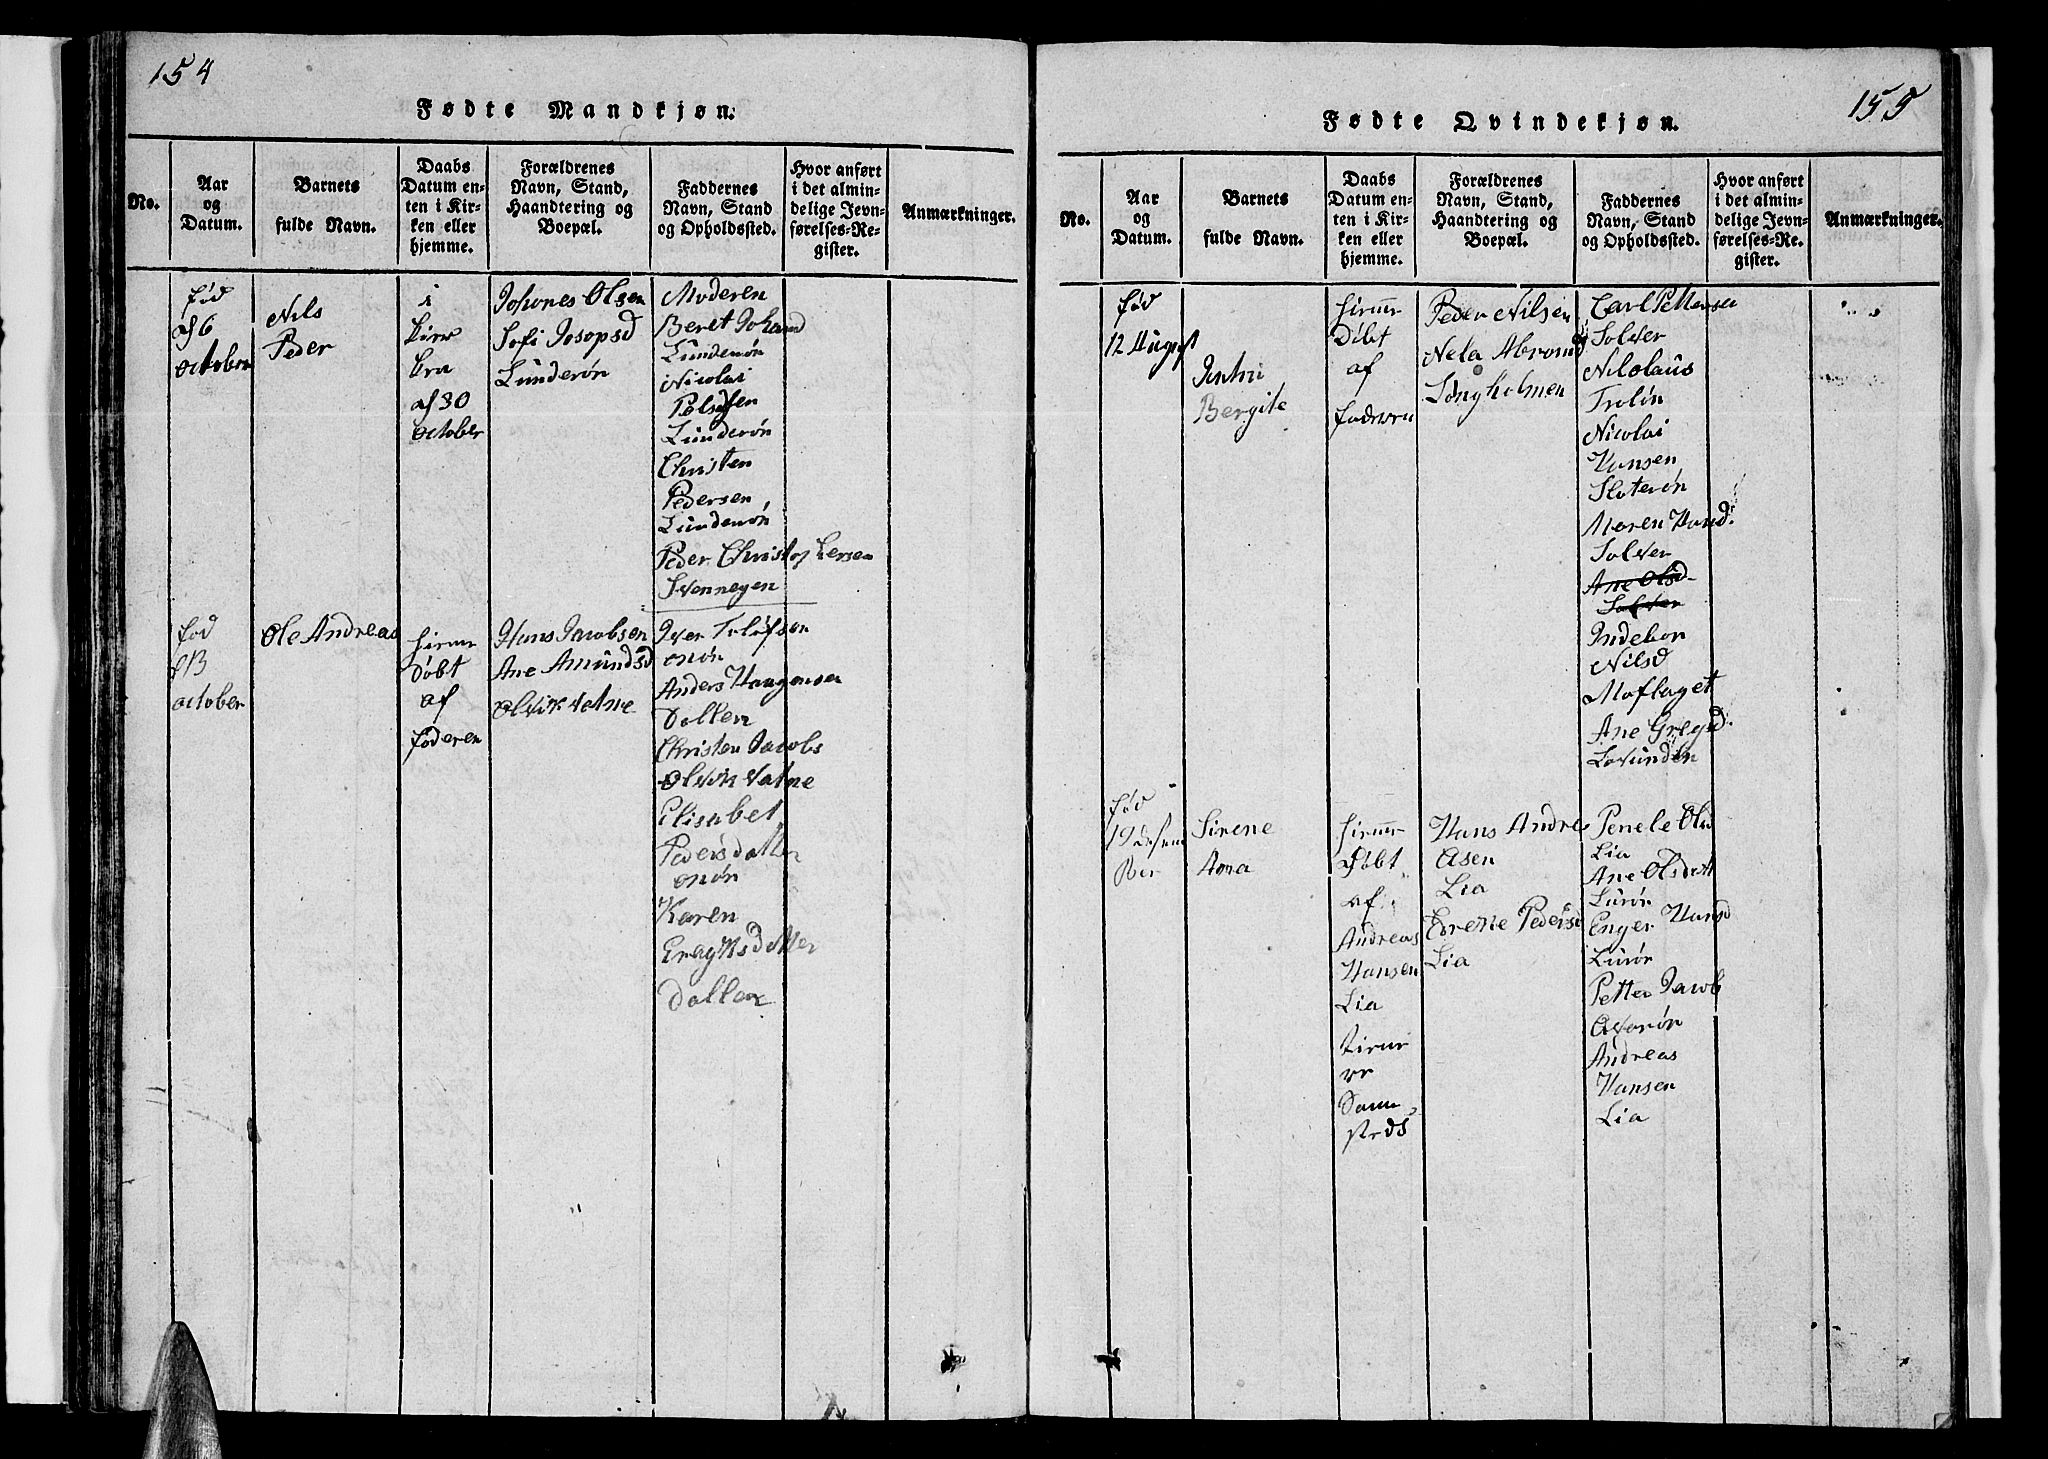 154
Fødte Mandkjøn.
No.
Aar
og
Datum.
Barnets
fulde Navn.
Daabs
Datum en-
ten i Kir-
ken eller
hjemme.
Forældrenes
Navn, Stand,
Haandtering og
Boepæl.
Faddernes
Navn, Stand
og Opholdssted.
Hvor anført
i det almin-
delige Jevn-
førelses-Re-
gister.
Anmærkninger.
fød
d 6
october
Nils
Peder
i
af 30
october
Johones Olsen
Sofi Josopsd
Lunderøn
Moderen
Beret Johand
Lunderøn
Nicolai
Lunderøn
Christen
Pedersen
Lunderøn
Peder Christoffersen
Svennegen
fød
october
Ole Andreas
Døbt
af
foderen
Hans Jacobsen
Ane Amundsd
Olvik vatne
Iver Tolofsen
onøn
Anders Haugensen
Dallen
Christen Jacobs
Olvik vatne
Elisabet
Pedersdatter
onøn
Karen
Dallen
155
Fødte Qvindekjøn.
No.
Aar
og
Datum.
Barnets
fulde Navn.
Daabs
Datum en-
ten i Kir-
ken eller
hjemme.
Forældrenes
Navn, Stand,
Haandtering og
Boepæl.
Faddernes
Navn, Stand
og Opholdssted.
Hvor anført
i det almin-
delige Jevn-
førelses-Re-
gister.
Anmærkninger.
fød
12 August
Bergite
Døbt
af
Peder Nilsen
Nela Abromsd
Longholmen
Carl Pettersen
Solvær
Nikolaus
Nicolai
Hansen
Sloterøn
Maren Hansd.
Solvær
Ane Olsd
Solvær
Indebor
Nilsd
Moflaget
Ane Gregd.
Lovunden
fød
19 desem
Ber
Sirene
Anna
Døbt
af
Andreas
Hansen
Lia
Hans Andre
asen
Lia
Lia
Lia
Ane Olsdat
Lurøn
Enger Hansd
Lurøn
Petter Jacob
Andreas
Hansen
Lia